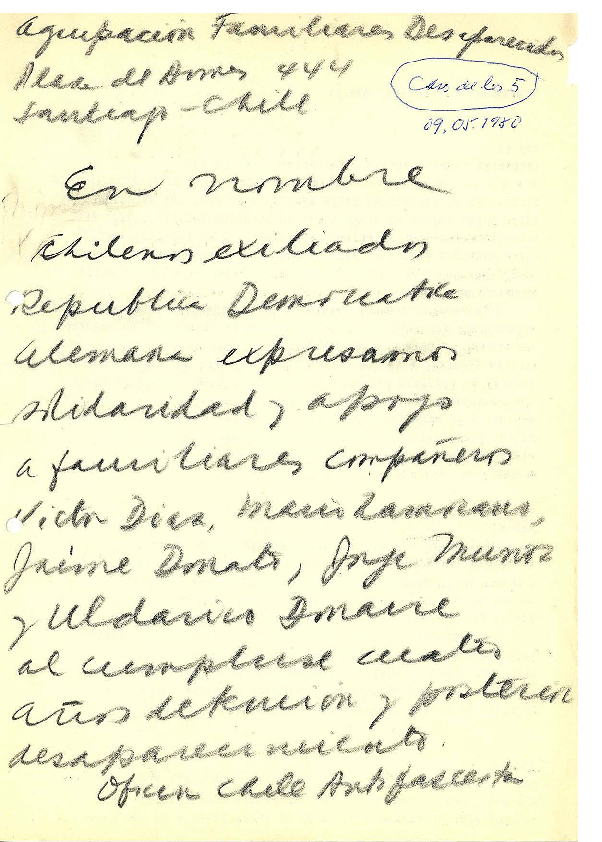 Agrupación Familiares Desaparecidos
Plaza de Armas 444
Santiago - Chile
Caso de los 5
09.05.1980
En nombre
chilenos exiliados
Republica Democratica
Alemana expresamos
solidaridad y apoyo
a familiares compañeros
Victor Diaz, Mario Zamorano,
Jaime Donato, Jorge Muñoz
y Uldarico Donaire
al cumplirse cuatro
años detencion y posterior
desaparecimiento.
Oficin Chile Antifascista